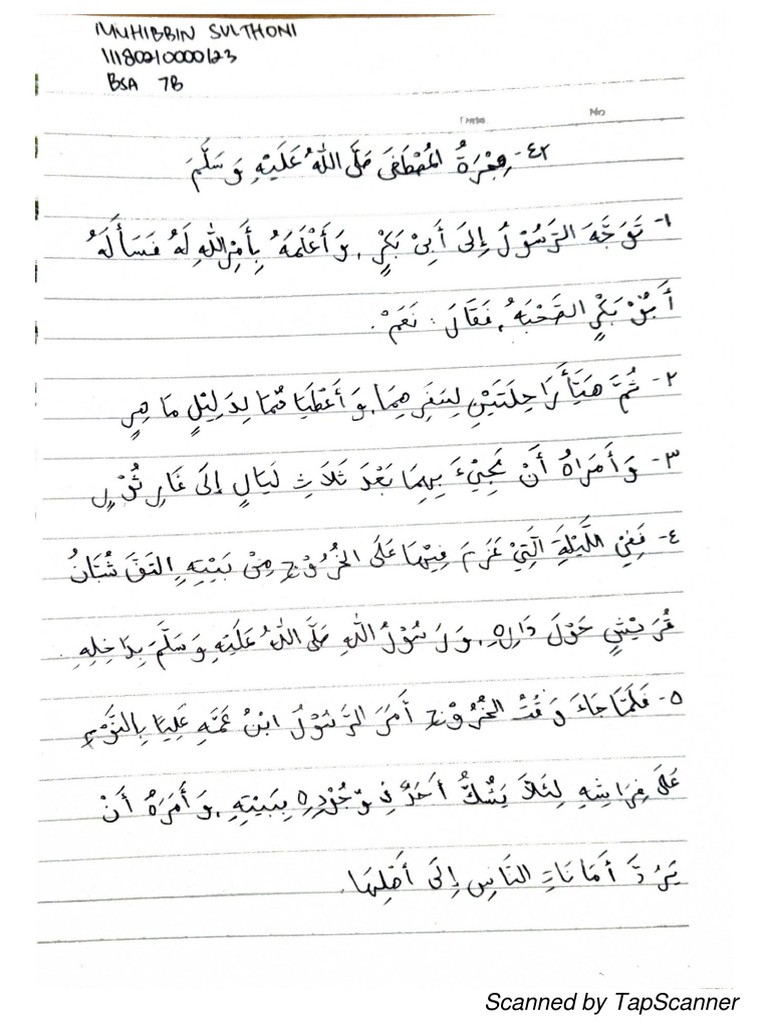 MUHIBBIN SULTHONI
11180210000123
BSA 7B
No
٤٢- هِجْرَةُ المُصْطَفَى صَلَّى اللّٰهُ عَلَيْهِ وَسَلَّمَ
١- تَوَجَّهَ الرَّسُوْلُ إِلَى أَبِيْ بَكْرٍ، وَأَعْلَمَهُ بِأَمْرِ اللّٰهِ لَهُ فَسَأَلَهُ
أَبُوْ بَكْرٍ الصُّحْبَةُ، فَقَالَ : نَعَمْ.
٢- ثُمَّ هَيَّأَ رَاحِلَتَيْنِ لِسَفَرِهِمَا، وَأَعْطَيَا هُمَا لِدَلِيْلٍ مَاهِرٍ
٣- وَأَمَرَاهُ أَنْ يَجِيْءَ بِهِمَا بَعْدَ ثَلَاثِ لَيَالٍ إِلَى غَارِ ثَوْرٍ
٤- فَفِيْ اللَّيْلَةِ الَّتِيْ عَزَمَ فِيْهَا عَلَى الخُرُوْجِ مِنْ بَيْتِهِ اِلتَفَّ شُبَّانُ
قُرَيْشٍ حَوْلَ دَارِهِ، وَرَسُوْلُ اللّٰهِ صَلَّى اللّٰهُ عَلَيْهِ وَسَلَّمَ بِدَاخِلِهِ.
٥- فَلَمَّا جَاءَ وَقْتُ الخُرُوْجِ أَمَرَ الرَّسُوْلُ ابْنُ عَمَّهِ عَلِيًا بِالنَّوْمِ
عَلَى فِرَاشِهِ لِئَلَّا يَشُكُّ أَحَدٌ فِي وُجُوْدِهِ بِبَيْتِهِ، وَأَمَرَهُ أَنْ
يَرُدَّ أَمَانَاتِ النَّاسِ إِلَى أَهْلِهَا.
Scanned by TapScanner